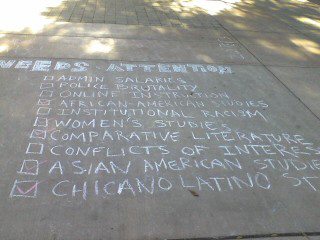 NEEDS ATTENTION
ADMIN SALARIES
POLICE BRUTALITY
ONLINE INSTRUCTION
AFRICAN-AMERICAN STUDIES
INSTITUTIONAL RACISM
WOMEN'S STUDIES
COMPARATIVE LITERATURE
CONFLICTS OF INTERES
ASIAN AMERICAN STUDIE
CHICANO LATINO ST